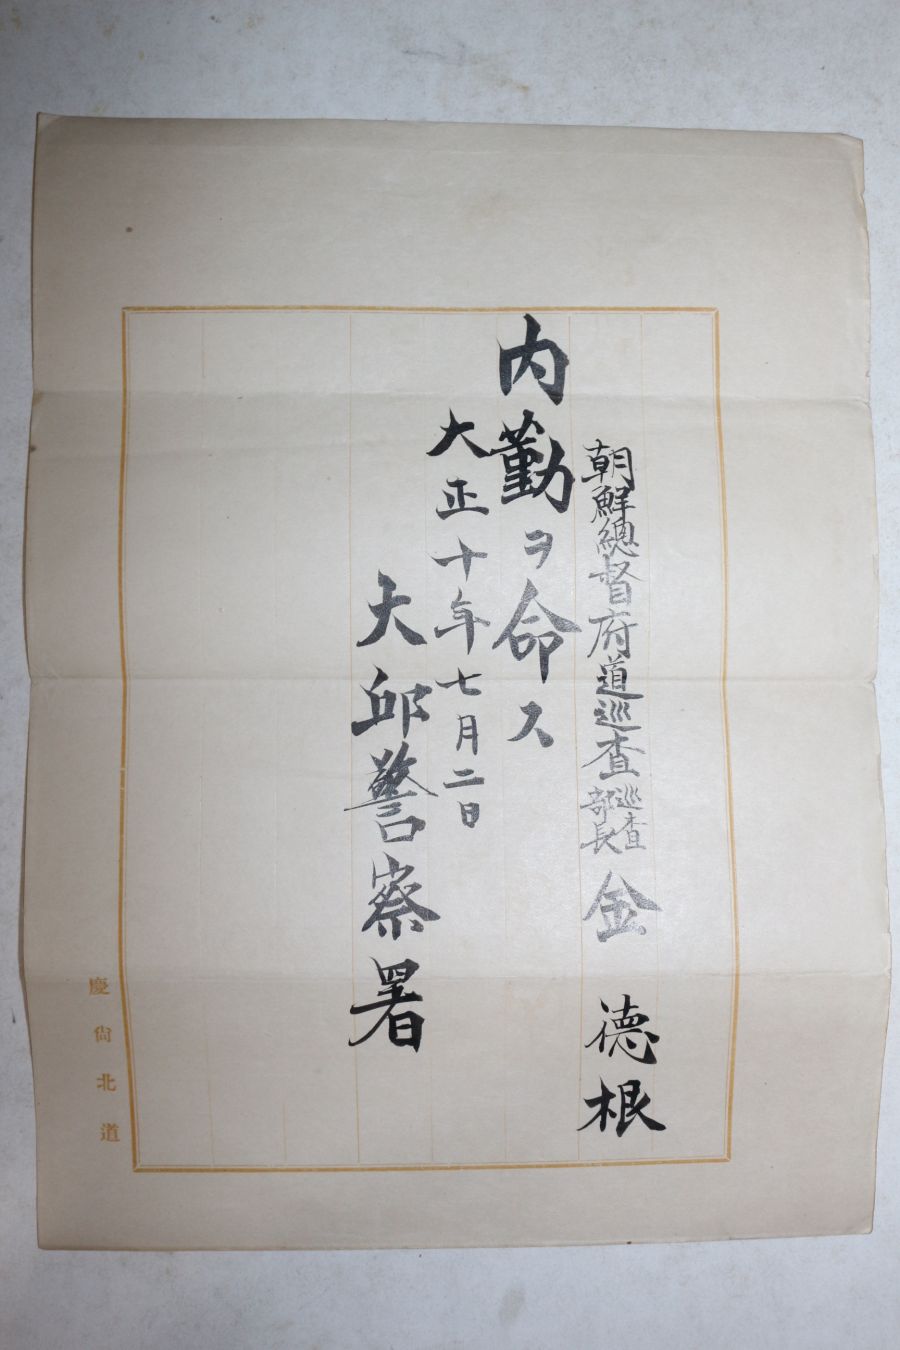 朝鮮總督府道巡査巡査部長 金 德根
内勤ヲ命ス
大正十年七月二日
大邱警察署
慶尙北道